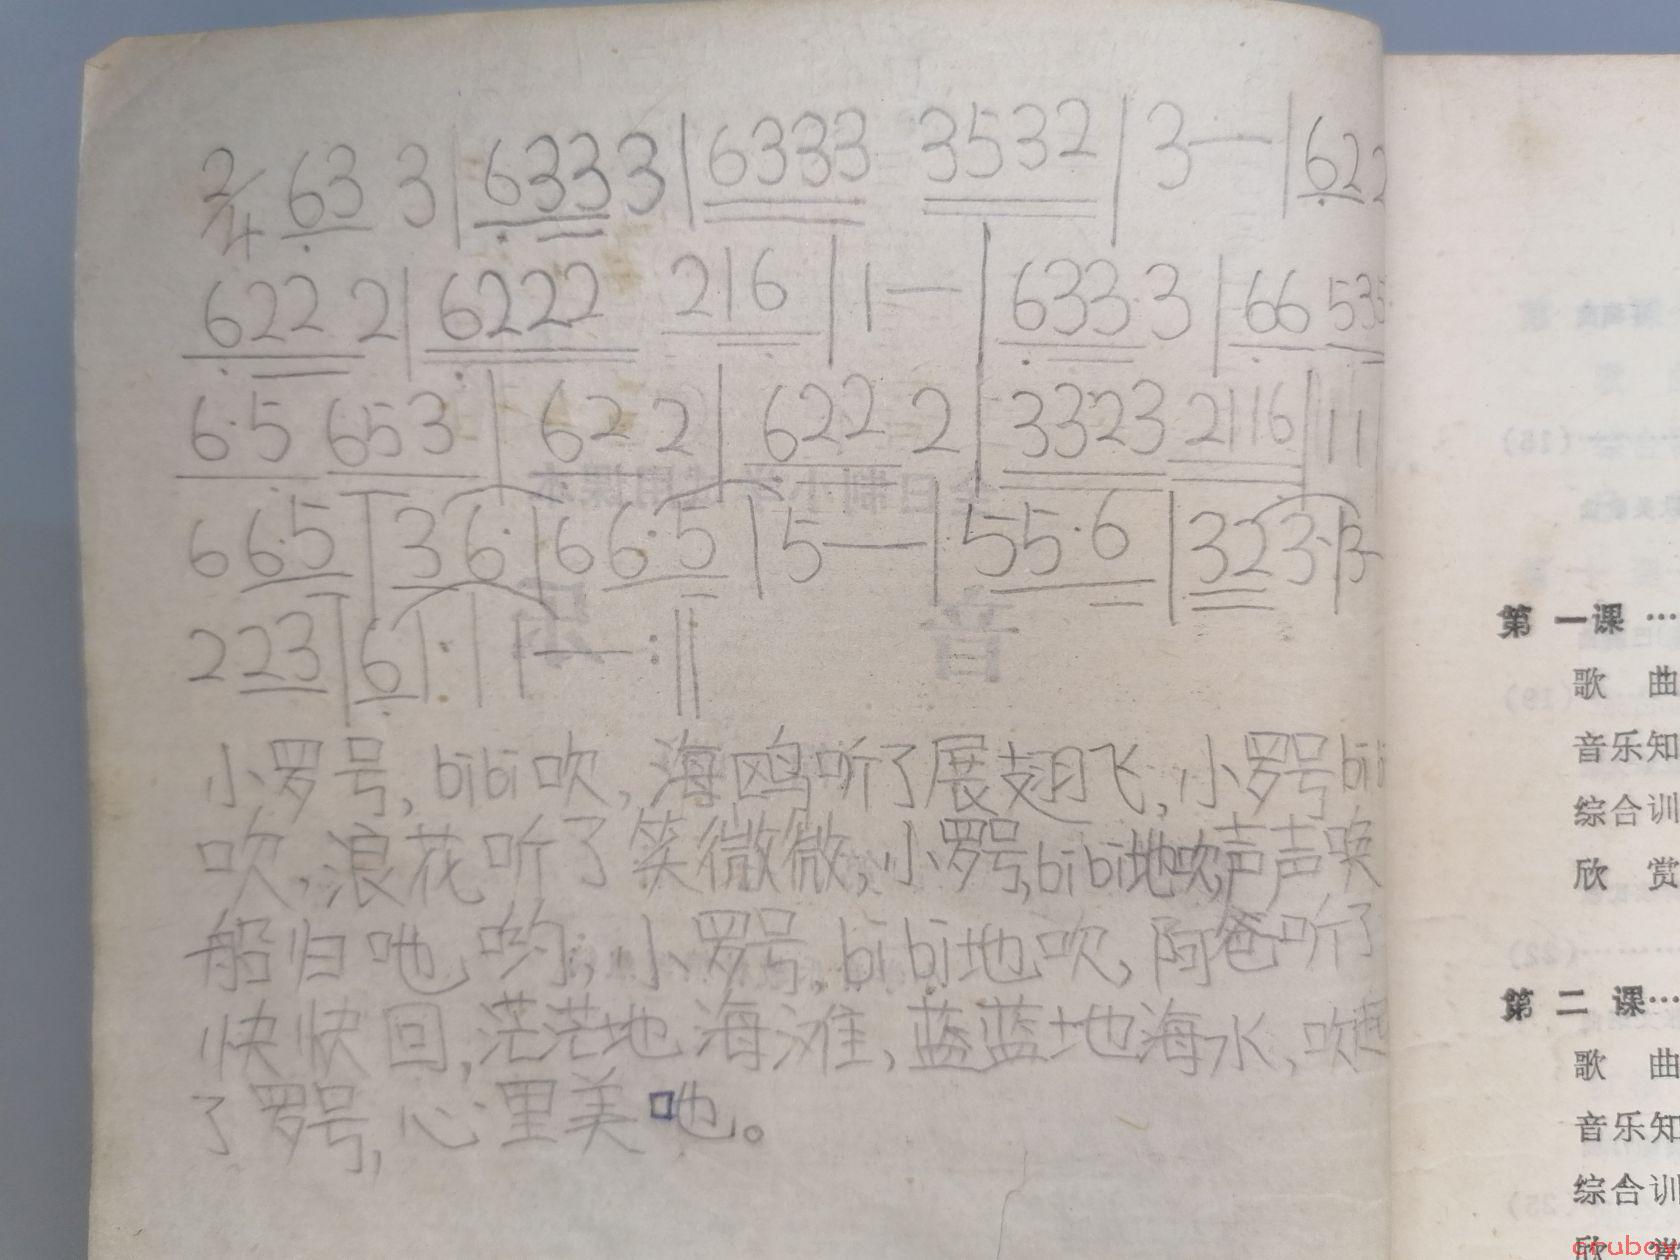 2/4 63 3 | 6333 | 6333 3532 | 3— | 622
6222 | 6222 216 | 1— | 633·3 | 66 535
6·5 653 | 62 2 | 622 2 | 3323 2116 | 11
6 6·5 | 36· | 66·5 | 5— | 55·6 | 323· | 3-
223 | 6 1· | 1— :||
小罗号,bibi吹,海鸥听了展翅飞,小罗号bibi
吹,浪花听了笑微微,小罗号,bibi地吹,声声唤
船归吔哟,小罗号,bibi地吹,阿爸听了
快快回,茫茫地海滩,蓝蓝地海水,吹起
了罗号,心里美吔。
第一课…
歌 曲
音乐知
综合训
欣 赏
第二课…
歌 曲
音乐知
综合训
欣 赏
全日制小学试用课本
音乐
(15)
(19)
(22)
(25)